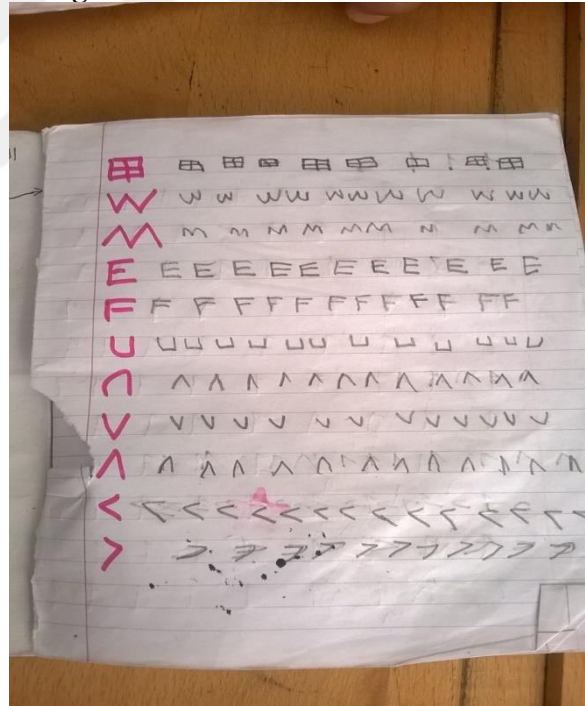 田 田 田 田 田 田 田 田 田
W W W W W W W W W W W W
M M M M M M M M M M M
E E E E E E E E E E E E
F F F F F F F F F F F F
U U U U U U U U U U U U
∩ ∧ ∧ ∧ ∧ ∧ ∧ ∧ ∧ ∧ ∧ ∧ ∧
V V V V V V V V V V V V
∧ ∧ ∧ ∧ ∧ ∧ ∧ ∧ ∧ ∧ ∧ ∧ ∧
< < < < < < < < < < < < < <
> > > > > > > > > > > >